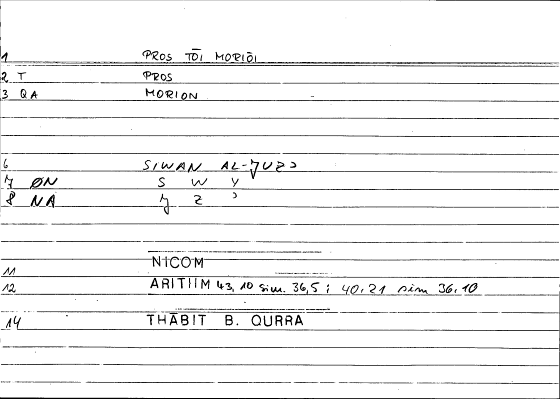 1 PROS TŌI MORIŌI
2 T PROS
3 QA MORION
6 SIWAN AL-ǦUZʾ
7 ØN S W Y
8 NA Ǧ Z ʾ
11 NICOM
12 ARITIIM 43,10 sim. 36,5; 40.21 sim 36.10
14 THĀBIT B. QURRA